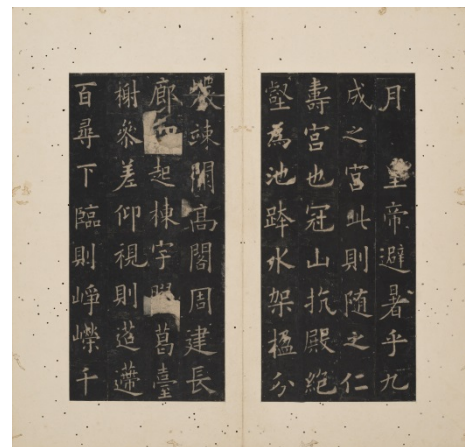 月 皇帝避暑乎九
成之宮此則隨之仁
壽宮也冠山抗殿絕
壑為池跨水架楹分
竦闕高閣周建長
廊四起棟宇膠葛臺
榭參差仰視則迢遰
百尋下臨則崢嶸千